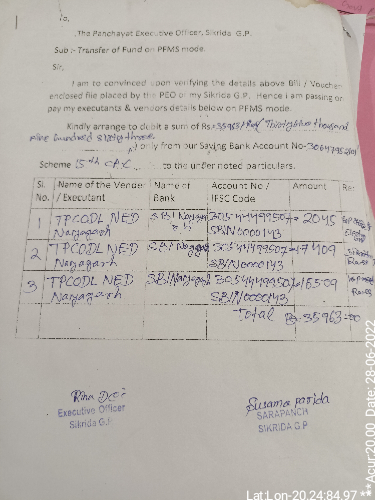 To,
The Panchayat Executive Officer, Sikrida G.P.
Sub :- Transfer of Fund on PFMS mode.
Sir,
I am to convinced upon verifying the details above Bill / Voucher
enclosed file placed by the PEO of my Sikrida G.P. Hence i am passing or
pay my executants & vendors details below on PFMS mode.
Kindly arrange to debit a sum of Rs.=35963/- Thirtyfive thousand
nine hundred sixtythree
only from our Saving Bank Account No-
Scheme 15th CFC to the under noted particulars.
Sl. No. Name of the Vender / Executant Name of Bank Account No / IFSC Code Amount
1 TPCODL NED Nayagarh SBI Nayagarh 30544499507 = 2045 SBIN0000143
2 TPCODL NED Nayagarh SBI Nayagarh 30544499507 = 17409 SBIN0000143
3 TPCODL NED Nayagarh SBI Nayagarh 30544499507 = 16509 SBIN0000143
Total Rs-35963=00
Rina Dei
Executive Officer
Sikrida G.P.
Susama parida
SARAPANCH
SIKRIDA G.P
Lat:Lon-20.24:84.97 ***Acur:20.00 Date: 28-06-2022